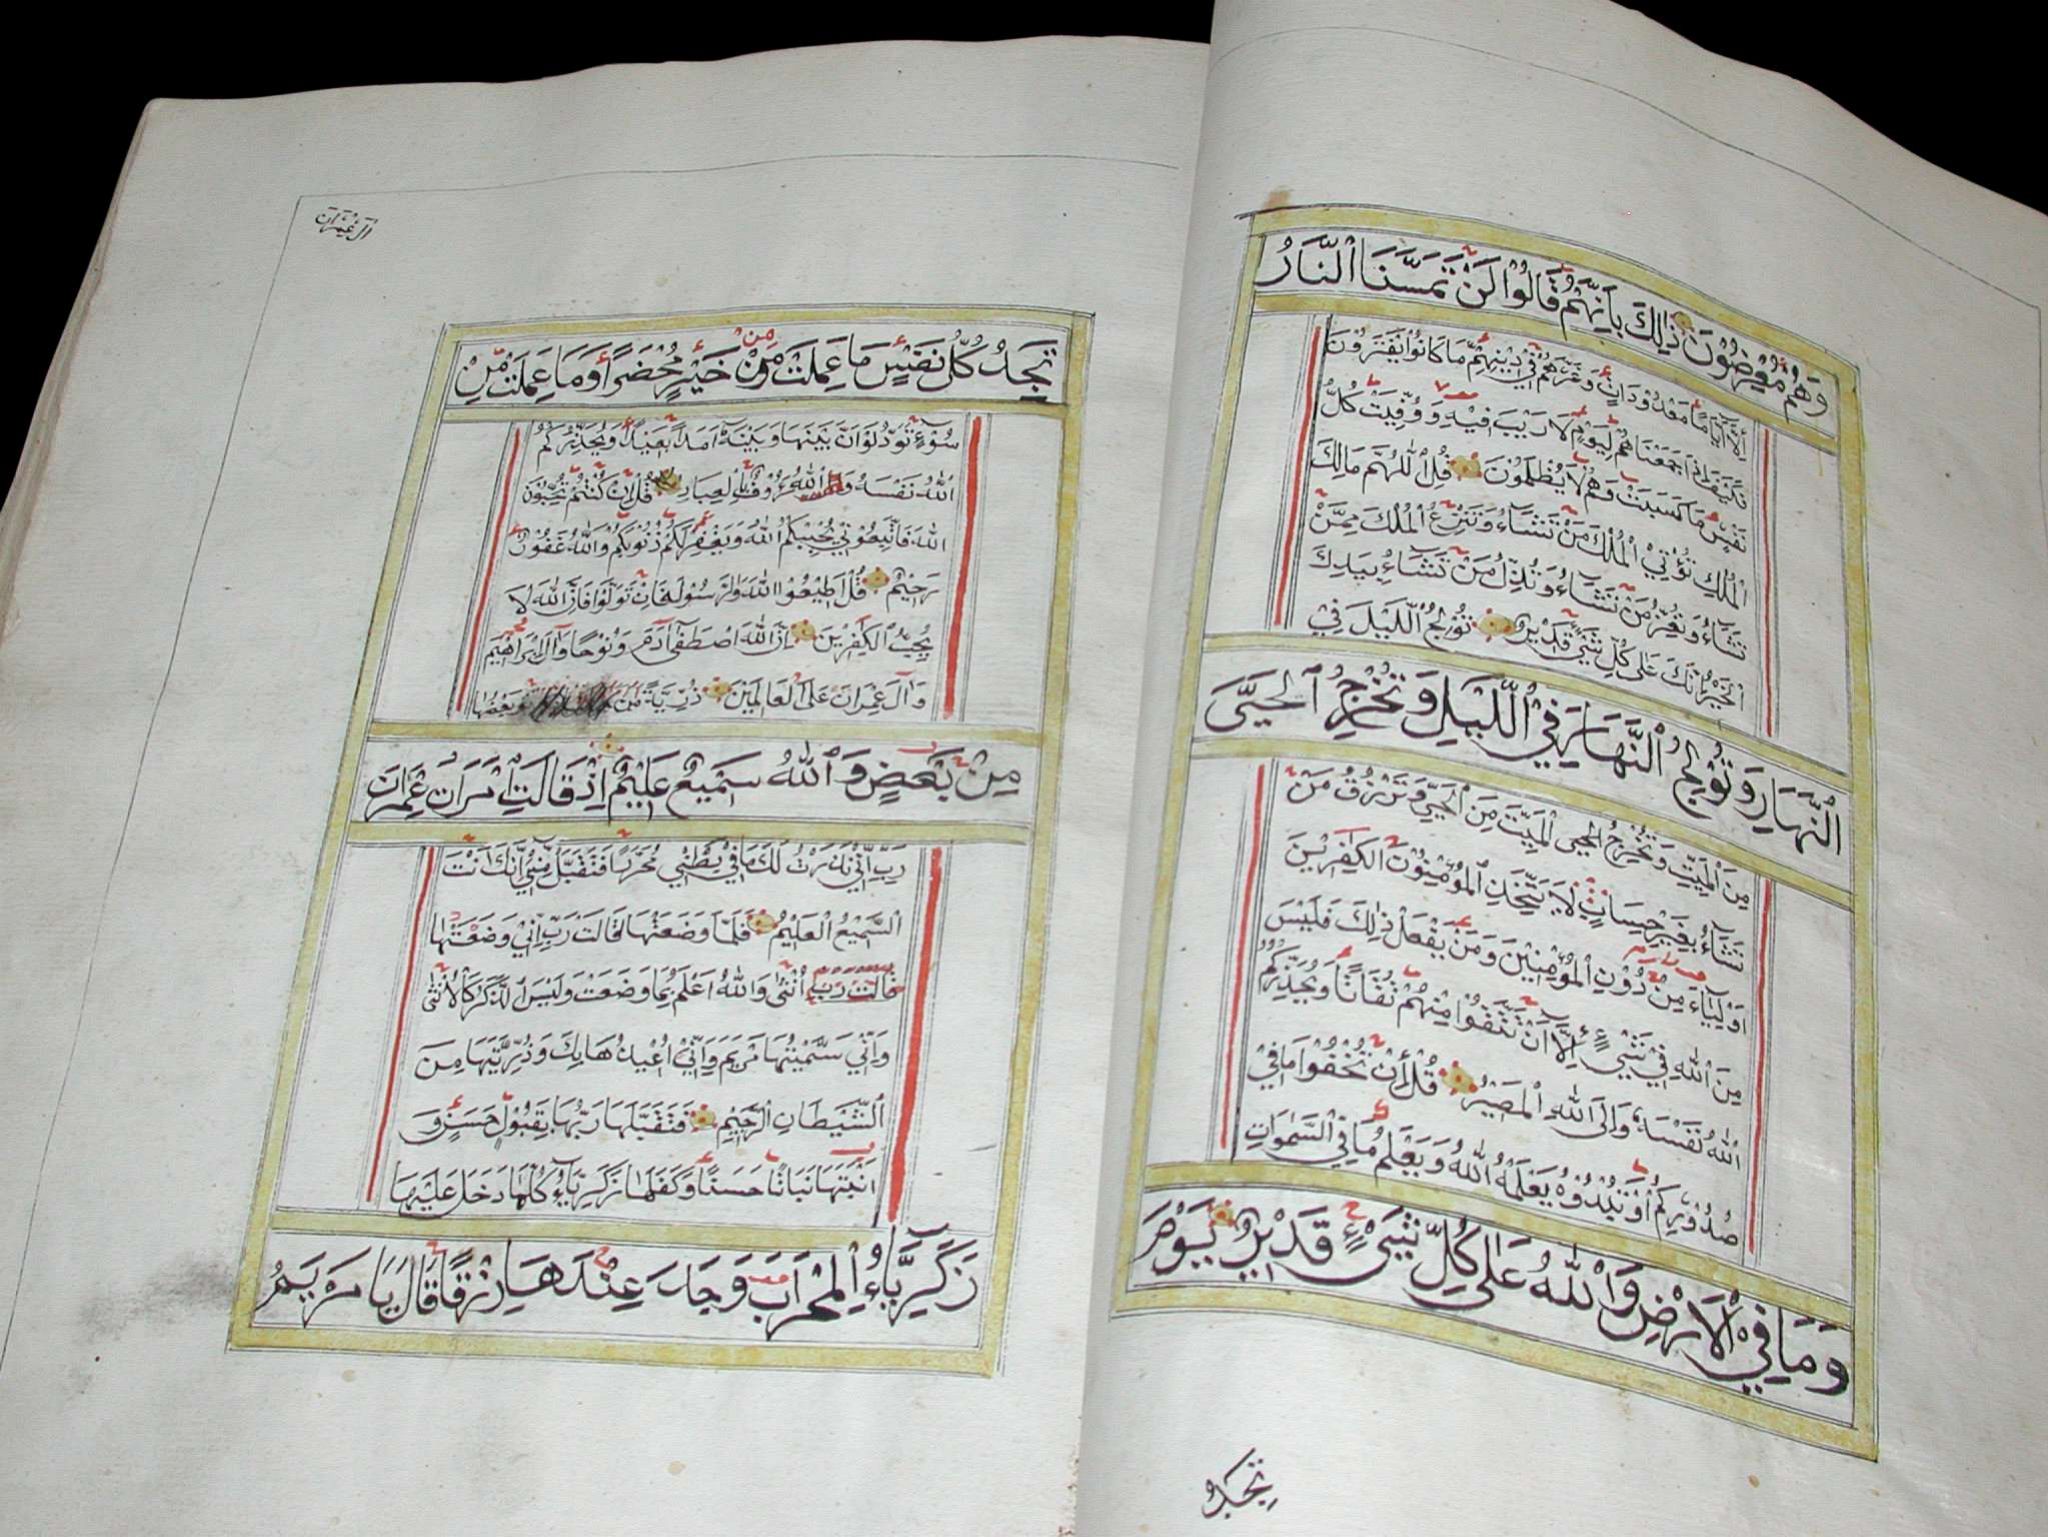 وَهُمْ مُعْرِضُوْنَ ذٰلِكَ بِاَنَّهُمْ قَالُوْا لَنْ تَمَسَّنَا النَّارُ
اِلَّا اَيَّامًا مَعْدُوْدَاتٍ وَغَرَّهُمْ فِيْ دِيْنِهِمْ مَا كَانُوْا يَفْتَرُوْنَ
فَكَيْفَ اِذَا جَمَعْنَاهُمْ لِيَوْمٍ لَا رَيْبَ فِيْهِ وَوُفِّيَتْ كُلُّ
نَفْسٍ مَا كَسَبَتْ وَهُمْ لَا يُظْلَمُوْنَ قُلِ اللّٰهُمَّ مَالِكَ
الْمُلْكِ تُؤْتِيْ الْمُلْكَ مَنْ تَشَاءُ وَتَنْزِعُ الْمُلْكَ مِمَّنْ
تَشَاءُ وَتُعِزُّ مَنْ تَشَاءُ وَتُذِلُّ مَنْ تَشَاءُ بِيَدِكَ
الْخَيْرُ اِنَّكَ عَلٰى كُلِّ شَيْءٍ قَدِيْرٌ تُوْلِجُ اللَّيْلَ فِيْ
النَّهَارِ وَتُوْلِجُ النَّهَارَ فِيْ اللَّيْلِ وَتُخْرِجُ الْحَيَّ
مِنَ الْمَيِّتِ وَتُخْرِجُ الْمَيِّتَ مِنَ الْحَيِّ وَتَرْزُقُ مَنْ
تَشَاءُ بِغَيْرِ حِسَابٍ لَا يَتَّخِذِ الْمُؤْمِنُوْنَ الْكَافِرِيْنَ
اَوْلِيَاءَ مِنْ دُوْنِ الْمُؤْمِنِيْنَ وَمَنْ يَفْعَلْ ذٰلِكَ فَلَيْسَ
مِنَ اللّٰهِ فِيْ شَيْءٍ اِلَّا اَنْ تَتَّقُوْا مِنْهُمْ تُقَاتًا وَيُحَذِّرُكُمُ
اللّٰهُ نَفْسَهُ وَاِلَى اللّٰهِ الْمَصِيْرُ قُلْ اِنْ تُخْفُوْا مَا فِيْ
صُدُوْرِكُمْ اَوْ تُبْدُوْهُ يَعْلَمْهُ اللّٰهُ وَيَعْلَمُ مَا فِي السَّمٰوَاتِ
وَمَا فِي الْاَرْضِ وَاللّٰهُ عَلٰى كُلِّ شَيْءٍ قَدِيْرٌ يَوْمَ
تَجِدُ
اٰلِ عِمْرَانَ
تَجِدُ كُلُّ نَفْسٍ مَا عَمِلَتْ مِنْ خَيْرٍ مُحْضَرًا وَمَا عَمِلَتْ مِنْ
سُوْءٍ تَوَدُّ لَوْ اَنَّ بَيْنَهَا وَبَيْنَهُ اَمَدًا بَعِيْدًا وَيُحَذِّرُكُمُ
اللّٰهُ نَفْسَهُ وَاللّٰهُ رَءُوْفٌ بِالْعِبَادِ قُلْ اِنْ كُنْتُمْ تُحِبُّوْنَ
اللّٰهَ فَاتَّبِعُوْنِيْ يُحْبِبْكُمُ اللّٰهُ وَيَغْفِرْ لَكُمْ ذُنُوْبَكُمْ وَاللّٰهُ غَفُوْرٌ
رَحِيْمٌ قُلْ اَطِيْعُوْا اللّٰهَ وَالرَّسُوْلَ فَاِنْ تَوَلَّوْا فَاِنَّ اللّٰهَ لَا
يُحِبُّ الْكٰفِرِيْنَ اِنَّ اللّٰهَ اصْطَفٰى اٰدَمَ وَنُوْحًا وَاٰلَ اِبْرَاهِيْمَ
وَاٰلَ عِمْرَانَ عَلَى الْعَالَمِيْنَ ذُرِّيَّةً بَعْضُهَا
مِنْ بَعْضٍ وَاللّٰهُ سَمِيْعٌ عَلِيْمٌ اِذْ قَالَتِ امْرَاَتُ عِمْرَانَ
رَبِّ اِنِّيْ نَذَرْتُ لَكَ مَا فِيْ بَطْنِيْ مُحَرَّرًا فَتَقَبَّلْ مِنِّيْ اِنَّكَ اَنْتَ
السَّمِيْعُ الْعَلِيْمُ فَلَمَّا وَضَعَتْهَا قَالَتْ رَبِّ اِنِّيْ وَضَعْتُهَا
قَالَتْ رَبِّ اُنْثٰى وَاللّٰهُ اَعْلَمُ بِمَا وَضَعَتْ وَلَيْسَ الذَّكَرُ كَالْاُنْثٰى
وَاِنِّيْ سَمَّيْتُهَا مَرْيَمَ وَاِنِّيْ اُعِيْذُهَا بِكَ وَذُرِّيَّتَهَا مِنَ
الشَّيْطَانِ الرَّجِيْمِ فَتَقَبَّلَهَا رَبُّهَا بِقَبُوْلٍ حَسَنٍ وَ
اَنْبَتَهَا نَبَاتًا حَسَنًا وَكَفَّلَهَا زَكَرِيَّاءُ كُلَّمَا دَخَلَ عَلَيْهَا
زَكَرِيَّاءُ الْمِحْرَابَ وَجَدَ عِنْدَهَا رِزْقًا قَالَ يَا مَرْيَمُ